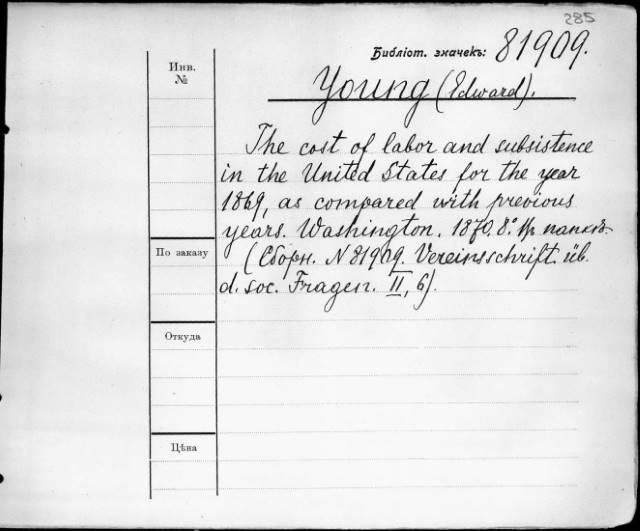 285
Библіот. значекъ: 81909.
Инв.
№
Young (Edward).
The cost of labor and subsistence
in the United States for the year
1869, as compared with previous
years. Washington. 1870. 8.° Въ папкѣ.
По заказу
(Сборн. N 81909. Vereinsschrift. üb.
d. soc. Fragen. II, 6).
Откуда
Цѣна